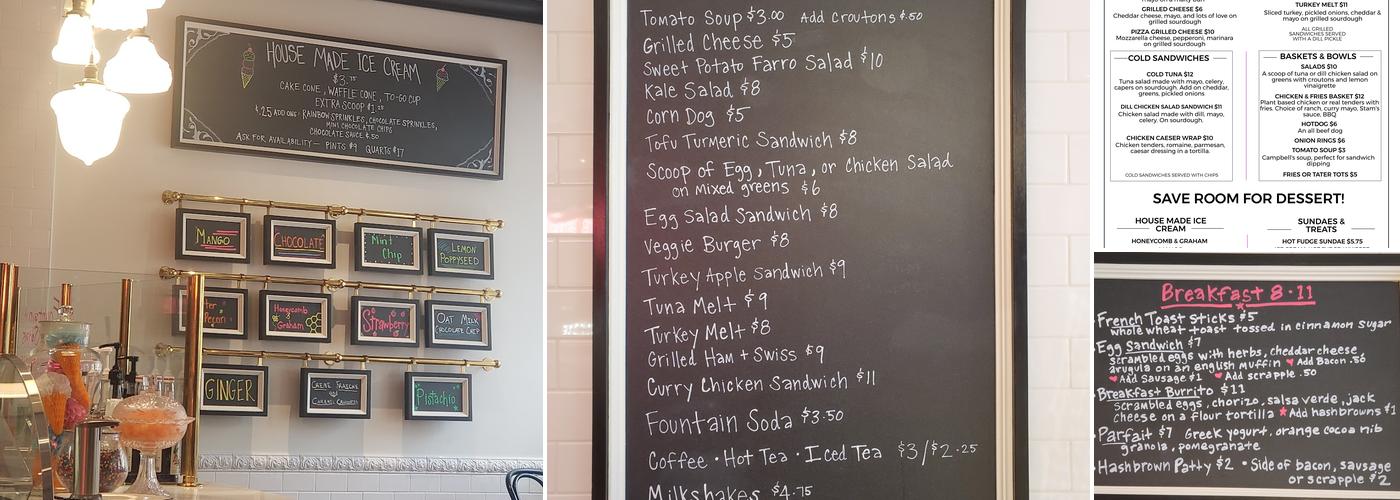 HOUSE MADE ICE CREAM
$3.75
CAKE CONE, WAFFLE CONE, TO-GO CUP
EXTRA SCOOP $1.25
$.25 ADD ONS: RAINBOW SPRINKLES, CHOCOLATE SPRINKLES,
MINI CHOCOLATE CHIPS
CHOCOLATE SAUCE $.50
ASK FOR AVAILABILITY— PINTS $9 QUARTS $17
MANGO
CHOCOLATE
Mint
Chip
LEMON
POPPYSEED
Pecan
Honeycomb
& Graham
Strawberry
OAT MILK
CHOCOLATE CHIP
GINGER
CRÈME FRAÎCHE
Pistachio
Tomato Soup $3.00 Add Croutons $.50
Grilled Cheese $5
Sweet Potato Farro Salad $10
Kale Salad $8
Corn Dog $5
Tofu Turmeric Sandwich $8
Scoop of Egg, Tuna, or Chicken Salad
on mixed greens $6
Egg Salad Sandwich $8
Veggie Burger $8
Turkey Apple Sandwich $9
Tuna Melt $9
Turkey Melt $8
Grilled Ham + Swiss $9
Curry Chicken Sandwich $11
Fountain Soda $3.50
Coffee · Hot Tea · Iced Tea $3/$2.25
Milkshakes $4.75
GRILLED CHEESE $6
Cheddar cheese, mayo, and lots of love on
grilled sourdough
PIZZA GRILLED CHEESE $10
Mozzarella cheese, pepperoni, marinara
on grilled sourdough
TURKEY MELT $11
Sliced turkey, pickled onions, cheddar &
mayo on grilled sourdough
ALL GRILLED
SANDWICHES SERVED
WITH A DILL PICKLE
COLD SANDWICHES
COLD TUNA $12
Tuna salad made with mayo, celery,
capers on sourdough. Add on cheddar,
greens, pickled onions
DILL CHICKEN SALAD SANDWICH $11
Chicken salad made with dill, mayo,
celery. On sourdough.
CHICKEN CAESER WRAP $10
Chicken tenders, romaine, parmesan,
caesar dressing in a tortilla.
COLD SANDWICHES SERVED WITH CHIPS
BASKETS & BOWLS
SALADS $10
A scoop of tuna or dill chicken salad on
greens with croutons and lemon
vinaigrette
CHICKEN & FRIES BASKET $12
Plant based chicken or real tenders with
fries. Choice of ranch, curry mayo, Stam's
sauce, BBQ
HOTDOG $6
An all beef dog
ONION RINGS $6
TOMATO SOUP $3
Campbell's soup, perfect for sandwich
dipping
FRIES OR TATER TOTS $5
SAVE ROOM FOR DESSERT!
HOUSE MADE ICE
CREAM
HONEYCOMB & GRAHAM
SUNDAES &
TREATS
HOT FUDGE SUNDAE $5.75
Breakfast 8-11
French Toast Sticks $5
whole wheat toast tossed in cinnamon sugar
Egg Sandwich $7
scrambled eggs with herbs, cheddar cheese
arugula on an english muffin ♥ Add Bacon .50
♥ Add Sausage $1 ♥ Add scrapple .50
Breakfast Burrito $11
scrambled eggs, chorizo, salsa verde, jack
cheese on a flour tortilla ★ Add hashbrowns $1
Parfait $7 Greek yogurt, orange cocoa nib
granola, pomegranate
Hashbrown Patty $2 • Side of bacon, sausage
or scrapple $2